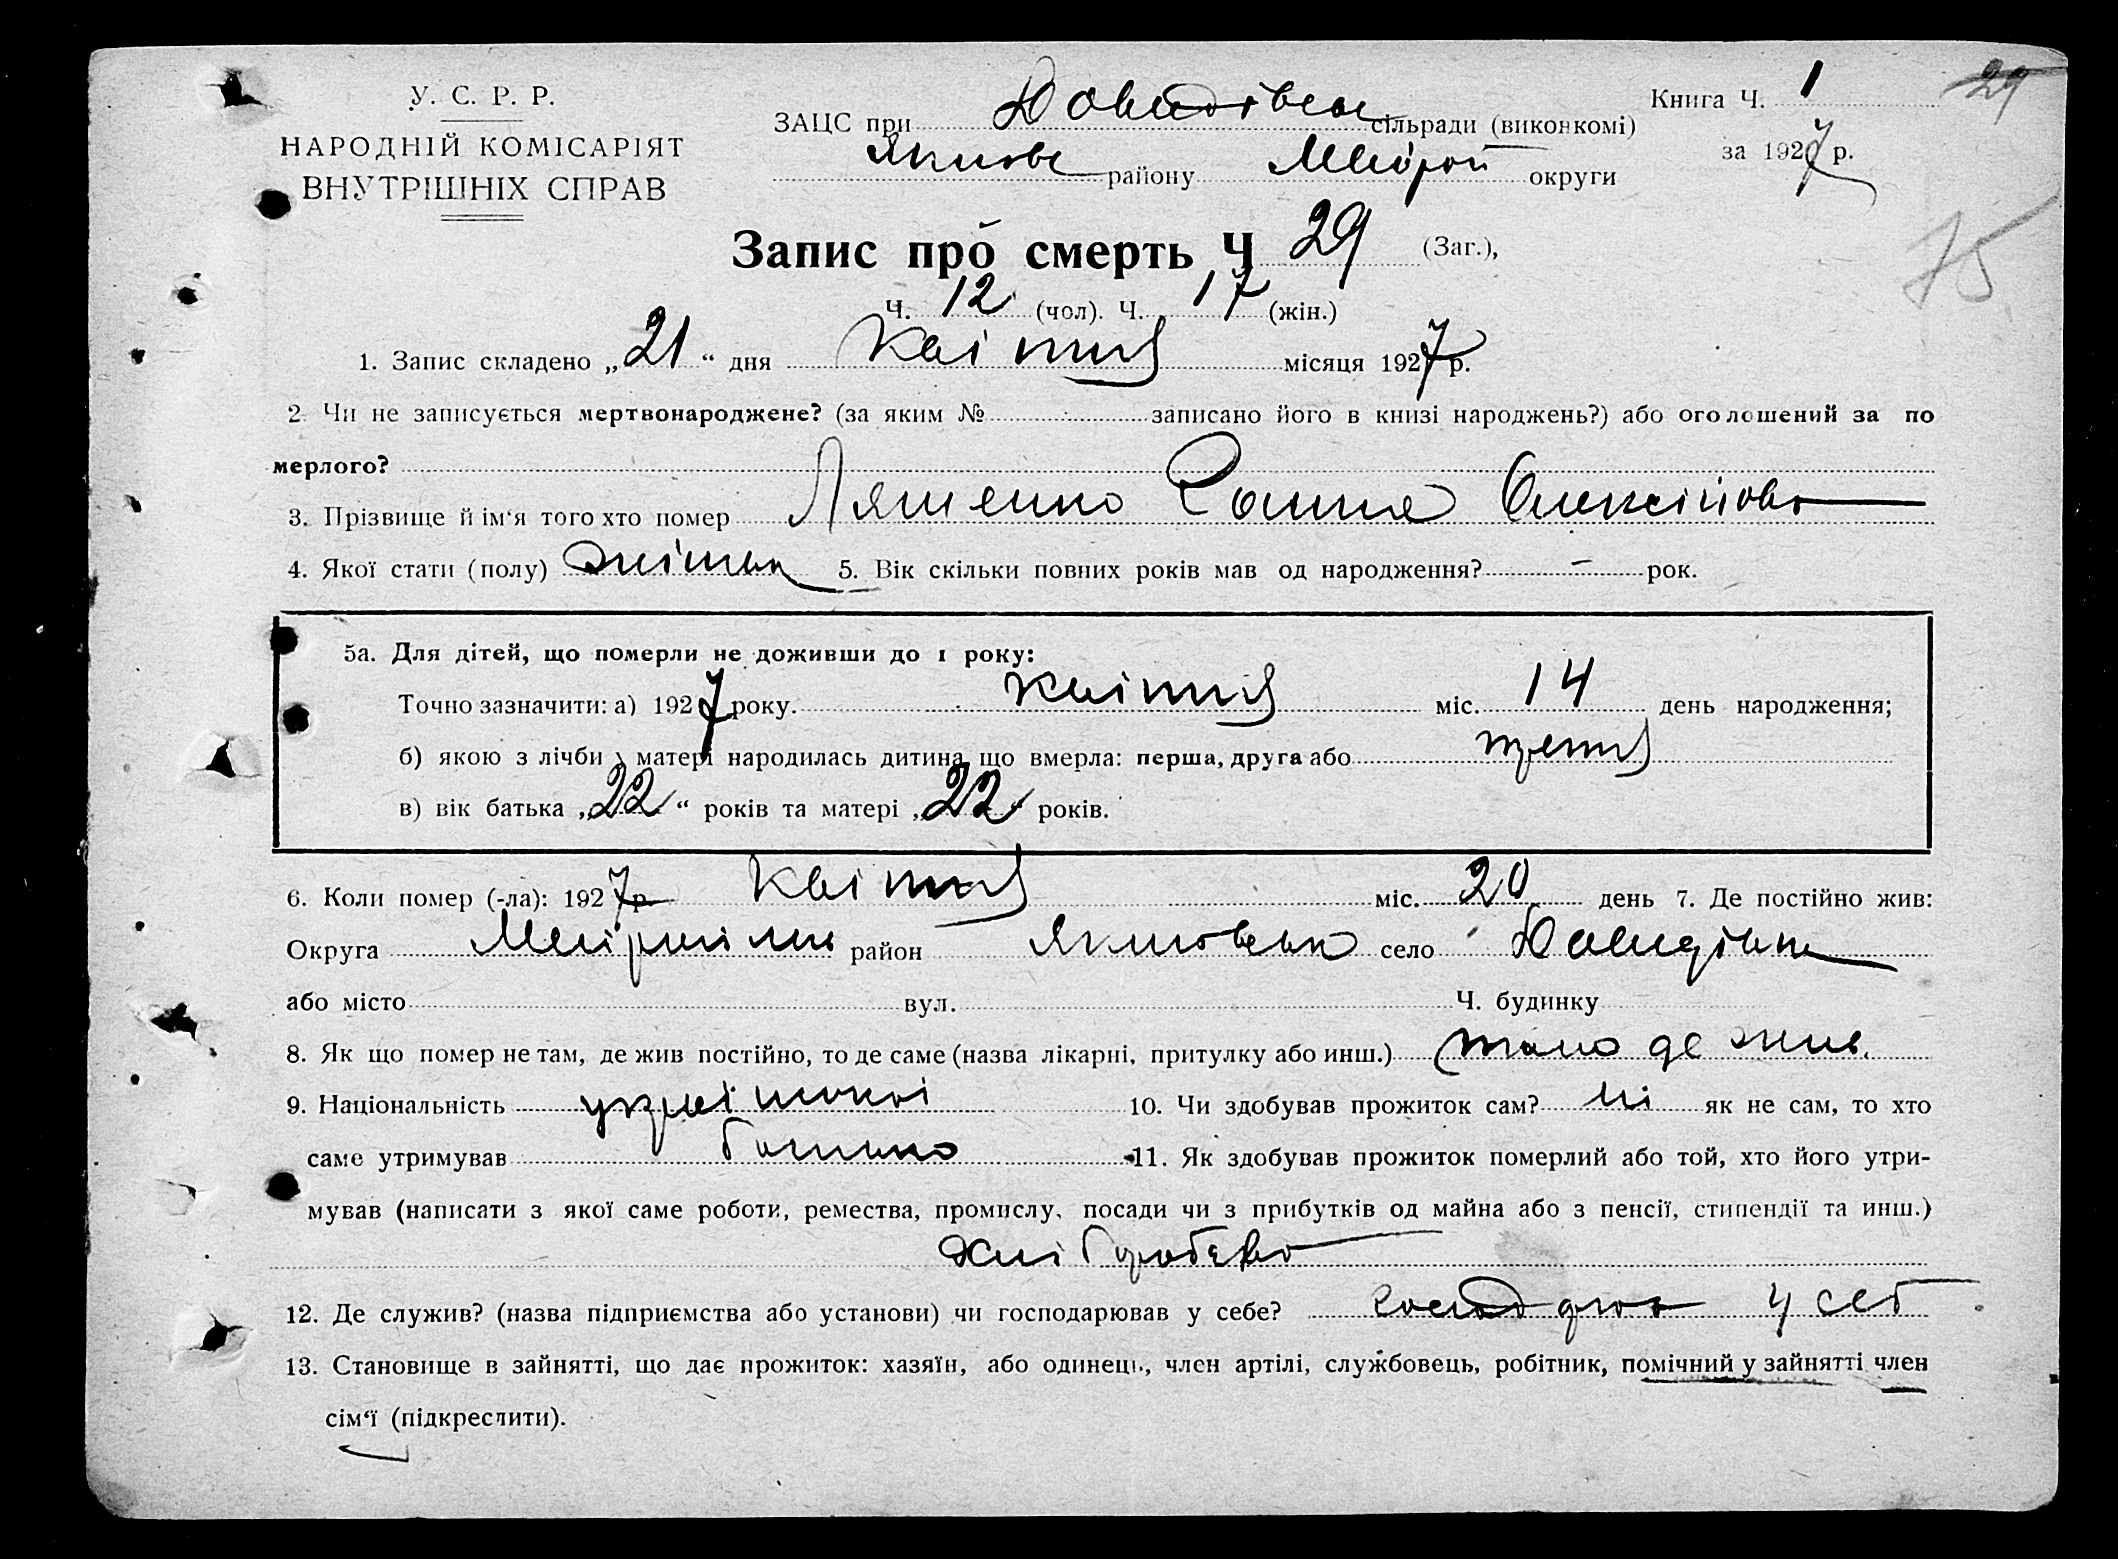 У. С. Р. Р.
НАРОДНІЙ КОМІСАРІЯТ
ВНУТРІШНІХ СПРАВ
ЗАЦС при сільради (виконкомі)
району округи
Книга Ч. 1
29
за 1927 р.
75
Запис про смерть Ч 29 (Заг.),
Ч. 12 (чол). Ч. 17 (жін.)
1. Запис складено „21“ дня Квітня місяця 1927 р.
2. Чи не записується мертвонароджене? (за яким № записано його в книзі народжень?) або оголошений за по
мерлого?
3. Прізвище й ім‘я того хто помер Ляшенко Ганна Олексійовн
4. Якої стати (полу) жіноч 5. Вік скільки повних років мав од народження? — рок.
5а. Для дітей, що померли не доживши до 1 року:
Точно зазначити: а) 1927 року. Квітня міс. 14 день народження;
б) якою з лічби у матері народилась дитина що вмерла: перша, друга або третя
в) вік батька „22“ років та матері „22“ років.
6. Коли помер (-ла): 1927 р. Квітня міс. 20 день 7. Де постійно жив:
Округа район Якимовськ село Давидівка
або місто вул. Ч. будинку
8. Як що помер не там, де жив постійно, то де саме (назва лікарні, притулку або инш.) тамо де жив.
9. Національність 10. Чи здобував прожиток сам? ні як не сам, то хто
саме утримував батько 11. Як здобував прожиток померлий або той, хто його утри-
мував (написати з якої саме роботи, ремества, промислу, посади чи з прибутків од майна або з пенсії, стипендії та инш.)
12. Де служив? (назва підприємства або установи) чи господарював у себе? у себ
13. Становище в зайнятті, що дає прожиток: хазяїн, або одинець, член артілі, службовець, робітник, помічний у зайнятті член
сім‘ї (підкреслити).